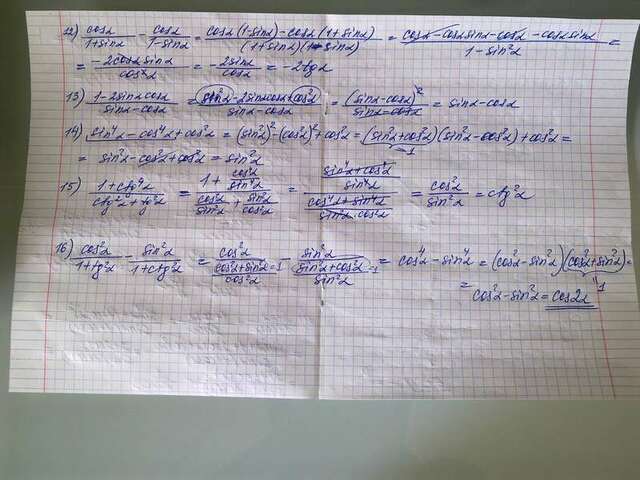 12) cosα/(1+sinα) - cosα/(1-sinα) = (cosα(1-sinα)-cosα(1+sinα))/((1+sinα)(1-sinα)) = (cosα-cosαsinα-cosα-cosαsinα)/(1-sin²α) =
= -2cosαsinα/cos²α = -2sinα/cosα = -2tgα
13) (1-2sinαcosα)/(sinα-cosα) = (sin²α-2sinαcosα+cos²α)/(sinα-cosα) = (sinα-cosα)²/(sinα-cosα) = sinα-cosα
14) sin⁴α-cos⁴α+cos²α = (sin²α)²-(cos²α)²+cos²α = (sin²α+cos²α)(sin²α-cos²α)+cos²α =
=1
= sin²α-cos²α+cos²α = sin²α
15) (1+ctg⁴α)/(ctg²α+tg²α) = (1+cos⁴α/sin⁴α)/(cos²α/sin²α+sin²α/cos²α) = ((sin⁴α+cos⁴α)/sin⁴α)/((cos⁴α+sin⁴α)/(sin²α·cos²α)) = cos²α/sin²α = ctg²α
16) cos²α/(1+tg²α) - sin²α/(1+ctg²α) = cos²α/((cos²α+sin²α=1)/cos²α) - sin²α/((sin²α+cos²α=1)/sin²α) = cos⁴α-sin⁴α = (cos²α-sin²α)(cos²α+sin²α) =
"1
= cos²α-sin²α = cos2α